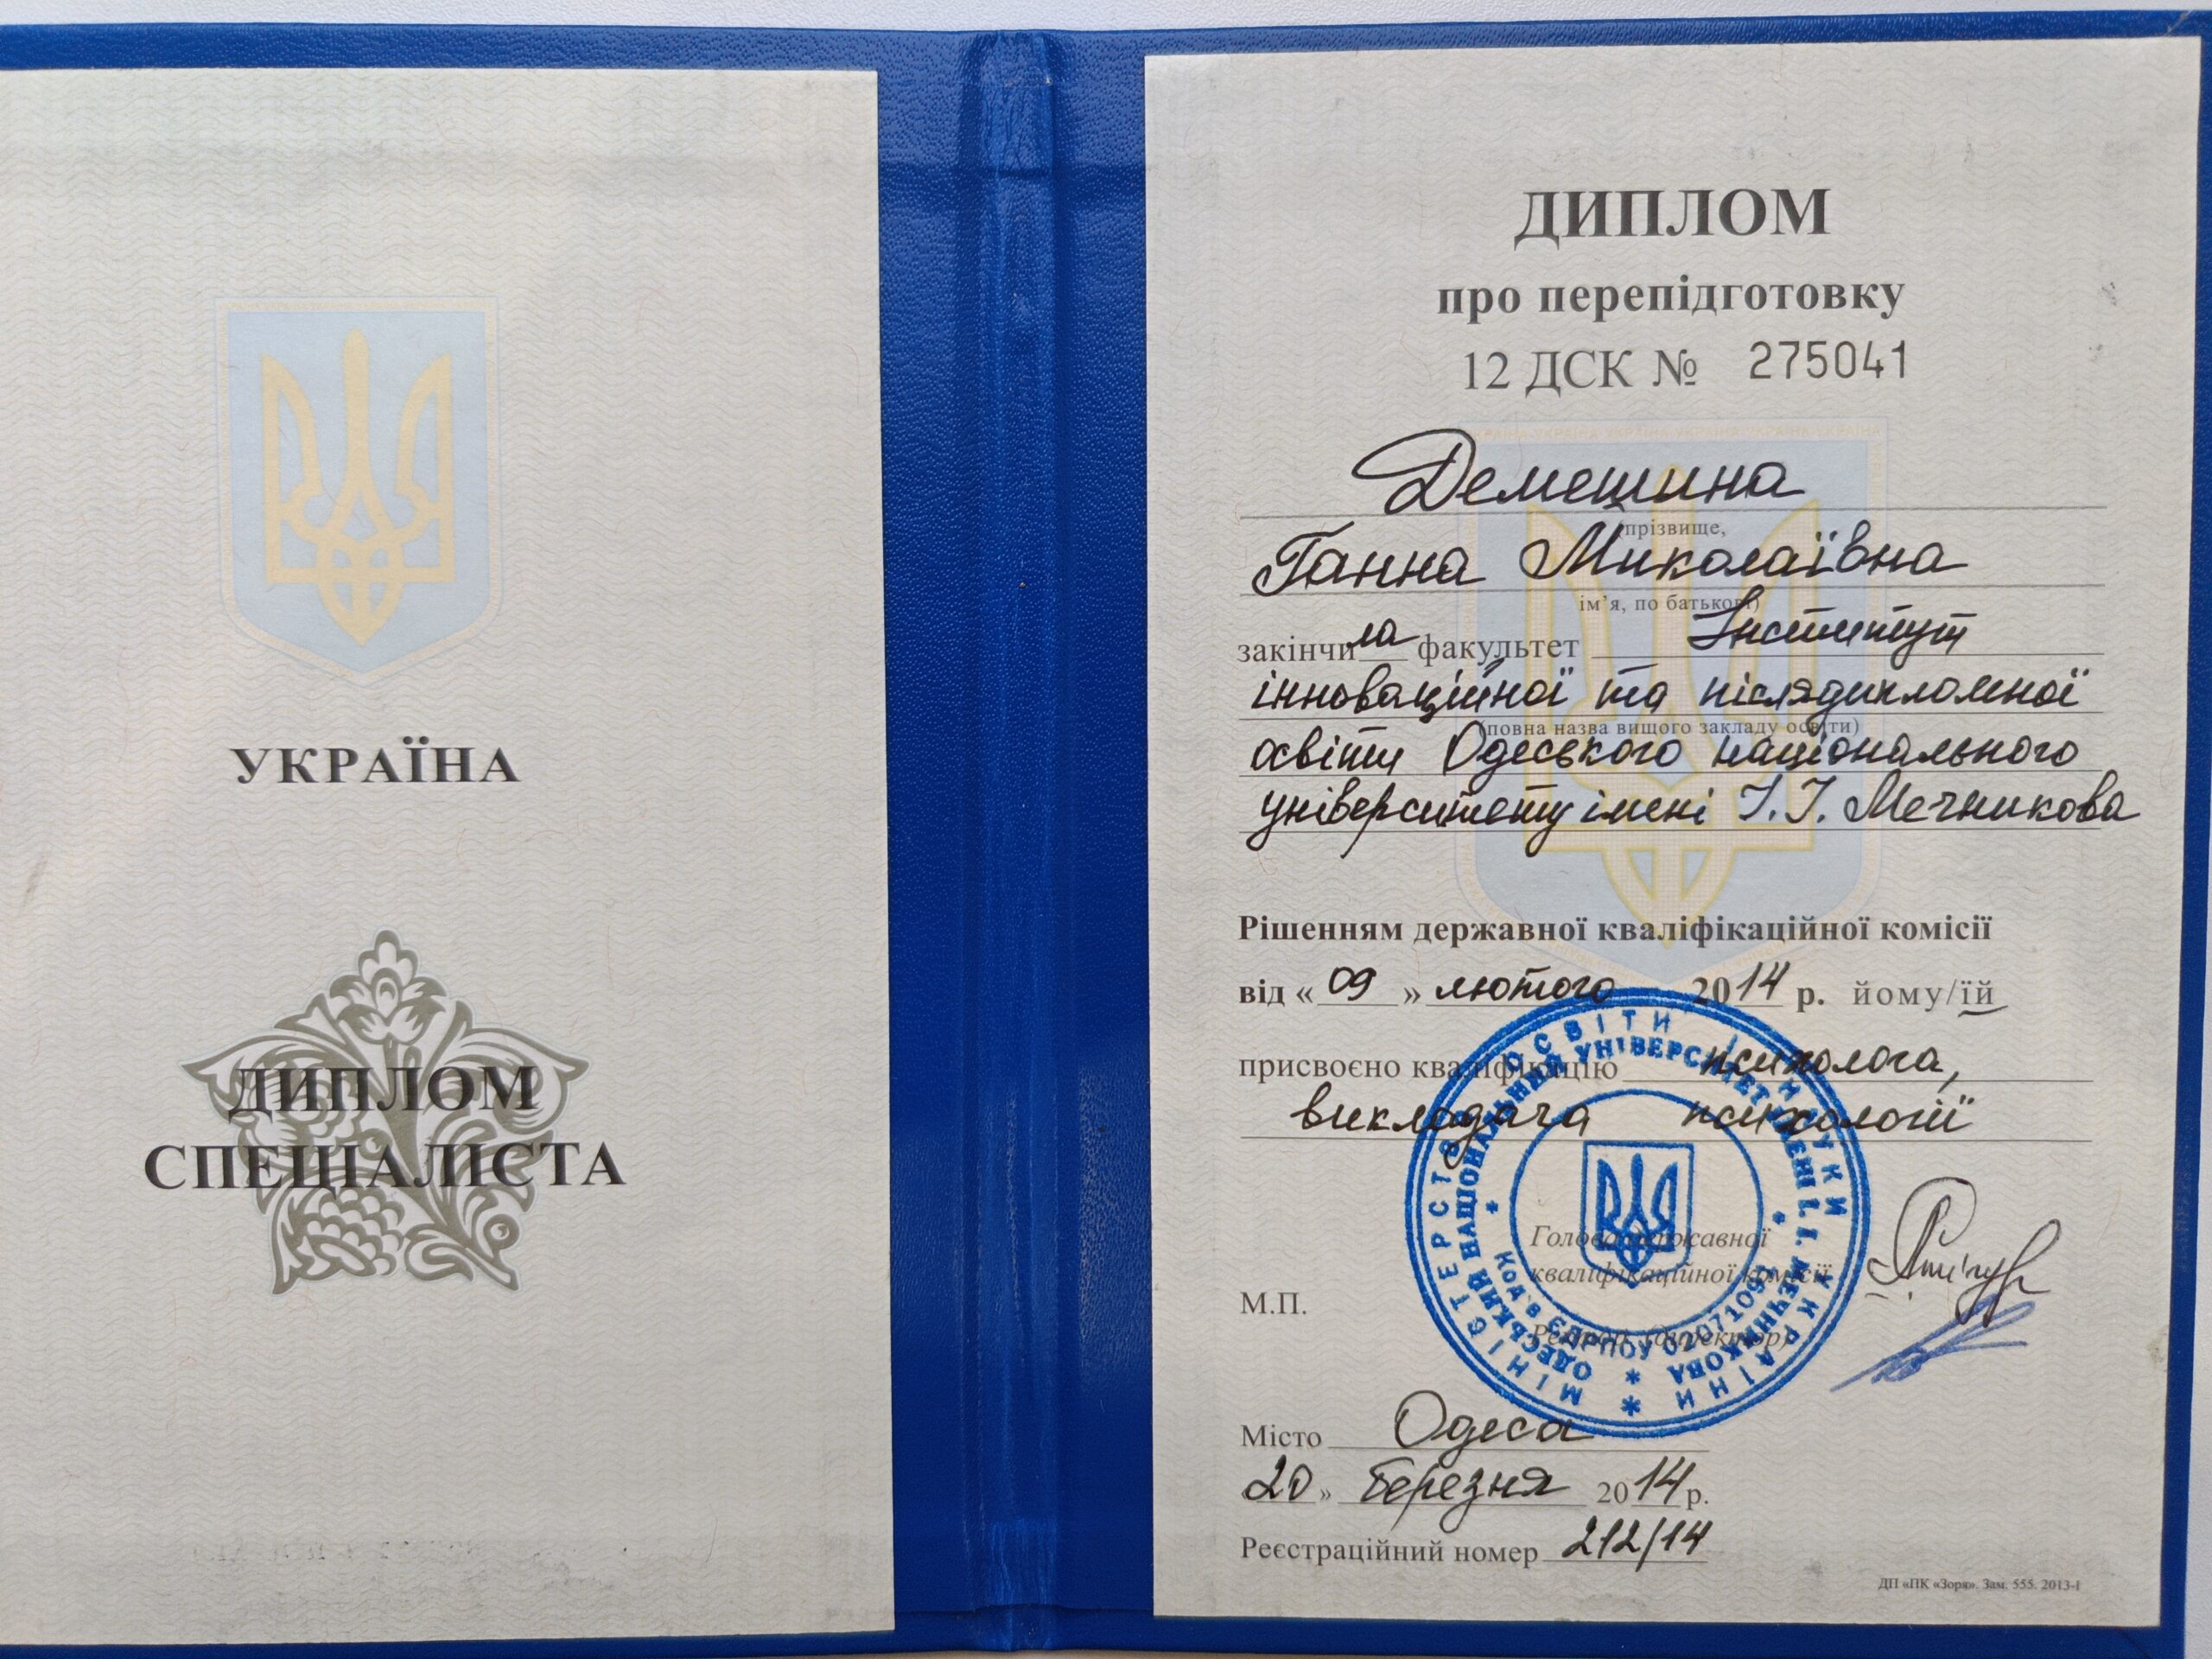 УКРАЇНА
ДИПЛОМ
СПЕЦІАЛІСТА
ДИПЛОМ
про перепідготовку
12 ДСК № 275041
Демешина
(прізвище,
Ганна Миколаївна
ім’я, по батькові)
закінчила факультет Інститут
інноваційної та післядипломної
(повна назва вищого закладу освіти)
освіти Одеського національного
університету імені І.І. Мечникова
Рішенням державної кваліфікаційної комісії
від « 09 » лютого 2014 р. йому/їй
присвоєно кваліфікацію психолога,
викладача психології
Голова державної
кваліфікаційної комісії
М.П.
Ректор (директор)
МІНІСТЕРСТВО ОСВІТИ І НАУКИ УКРАЇНИ
ОДЕСЬКИЙ НАЦІОНАЛЬНИЙ УНІВЕРСИТЕТ ІМЕНІ І. І. МЕЧНИКОВА
Код в ЄДРПОУ 02071091
Місто Одеса
20 » березня 2014 р.
Реєстраційний номер 212/14
ДП «ПК «Зоря». Зам. 555. 2013-І